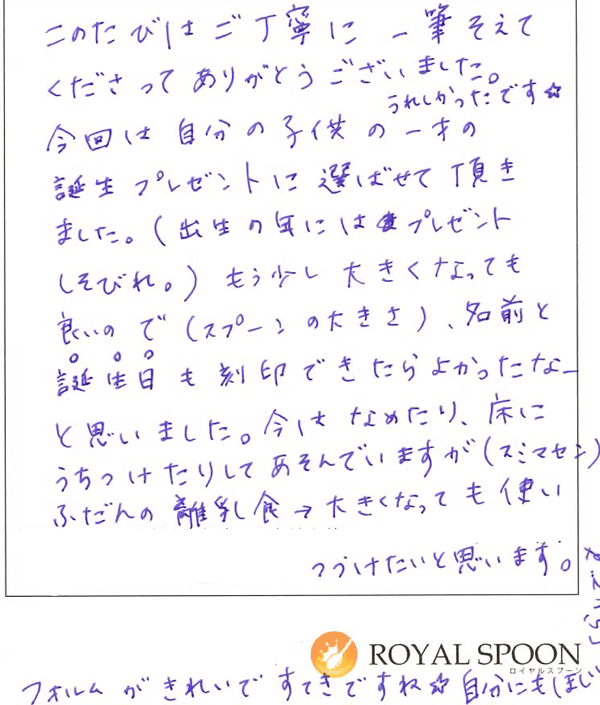 このたびは ご丁寧に 一筆そえて
くださって ありがとう ございました。
うれしかったです☆
今回は 自分の子供の一才の
誕生プレゼントに選ばせて頂き
ました。(出生の年にはプレゼント
しそびれ。) もう少し 大きくなっても
良いので(スプーンの大きさ)、名前と
誕生日も刻印できたらよかったなー
と思いました。今は なめたり、床に
うちつけたりしてあそんでいますが(スミマセン)
ふだんの離乳食→大きくなっても使い
つづけたいと思います。
ROYAL SPOON
ロイヤルスプーン
フォルムがきれいで すてきですね☆ 自分にもほしい